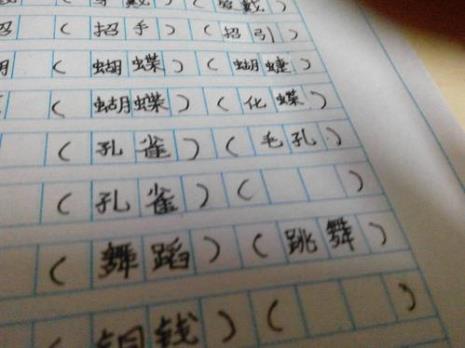 （招手）（招引）
（蝴蝶）（蝴
（蝴蝶）（化蝶）
（孔雀）（毛孔）
（孔雀）（ ）
（舞蹈）（跳舞）
铜钱）（ ）